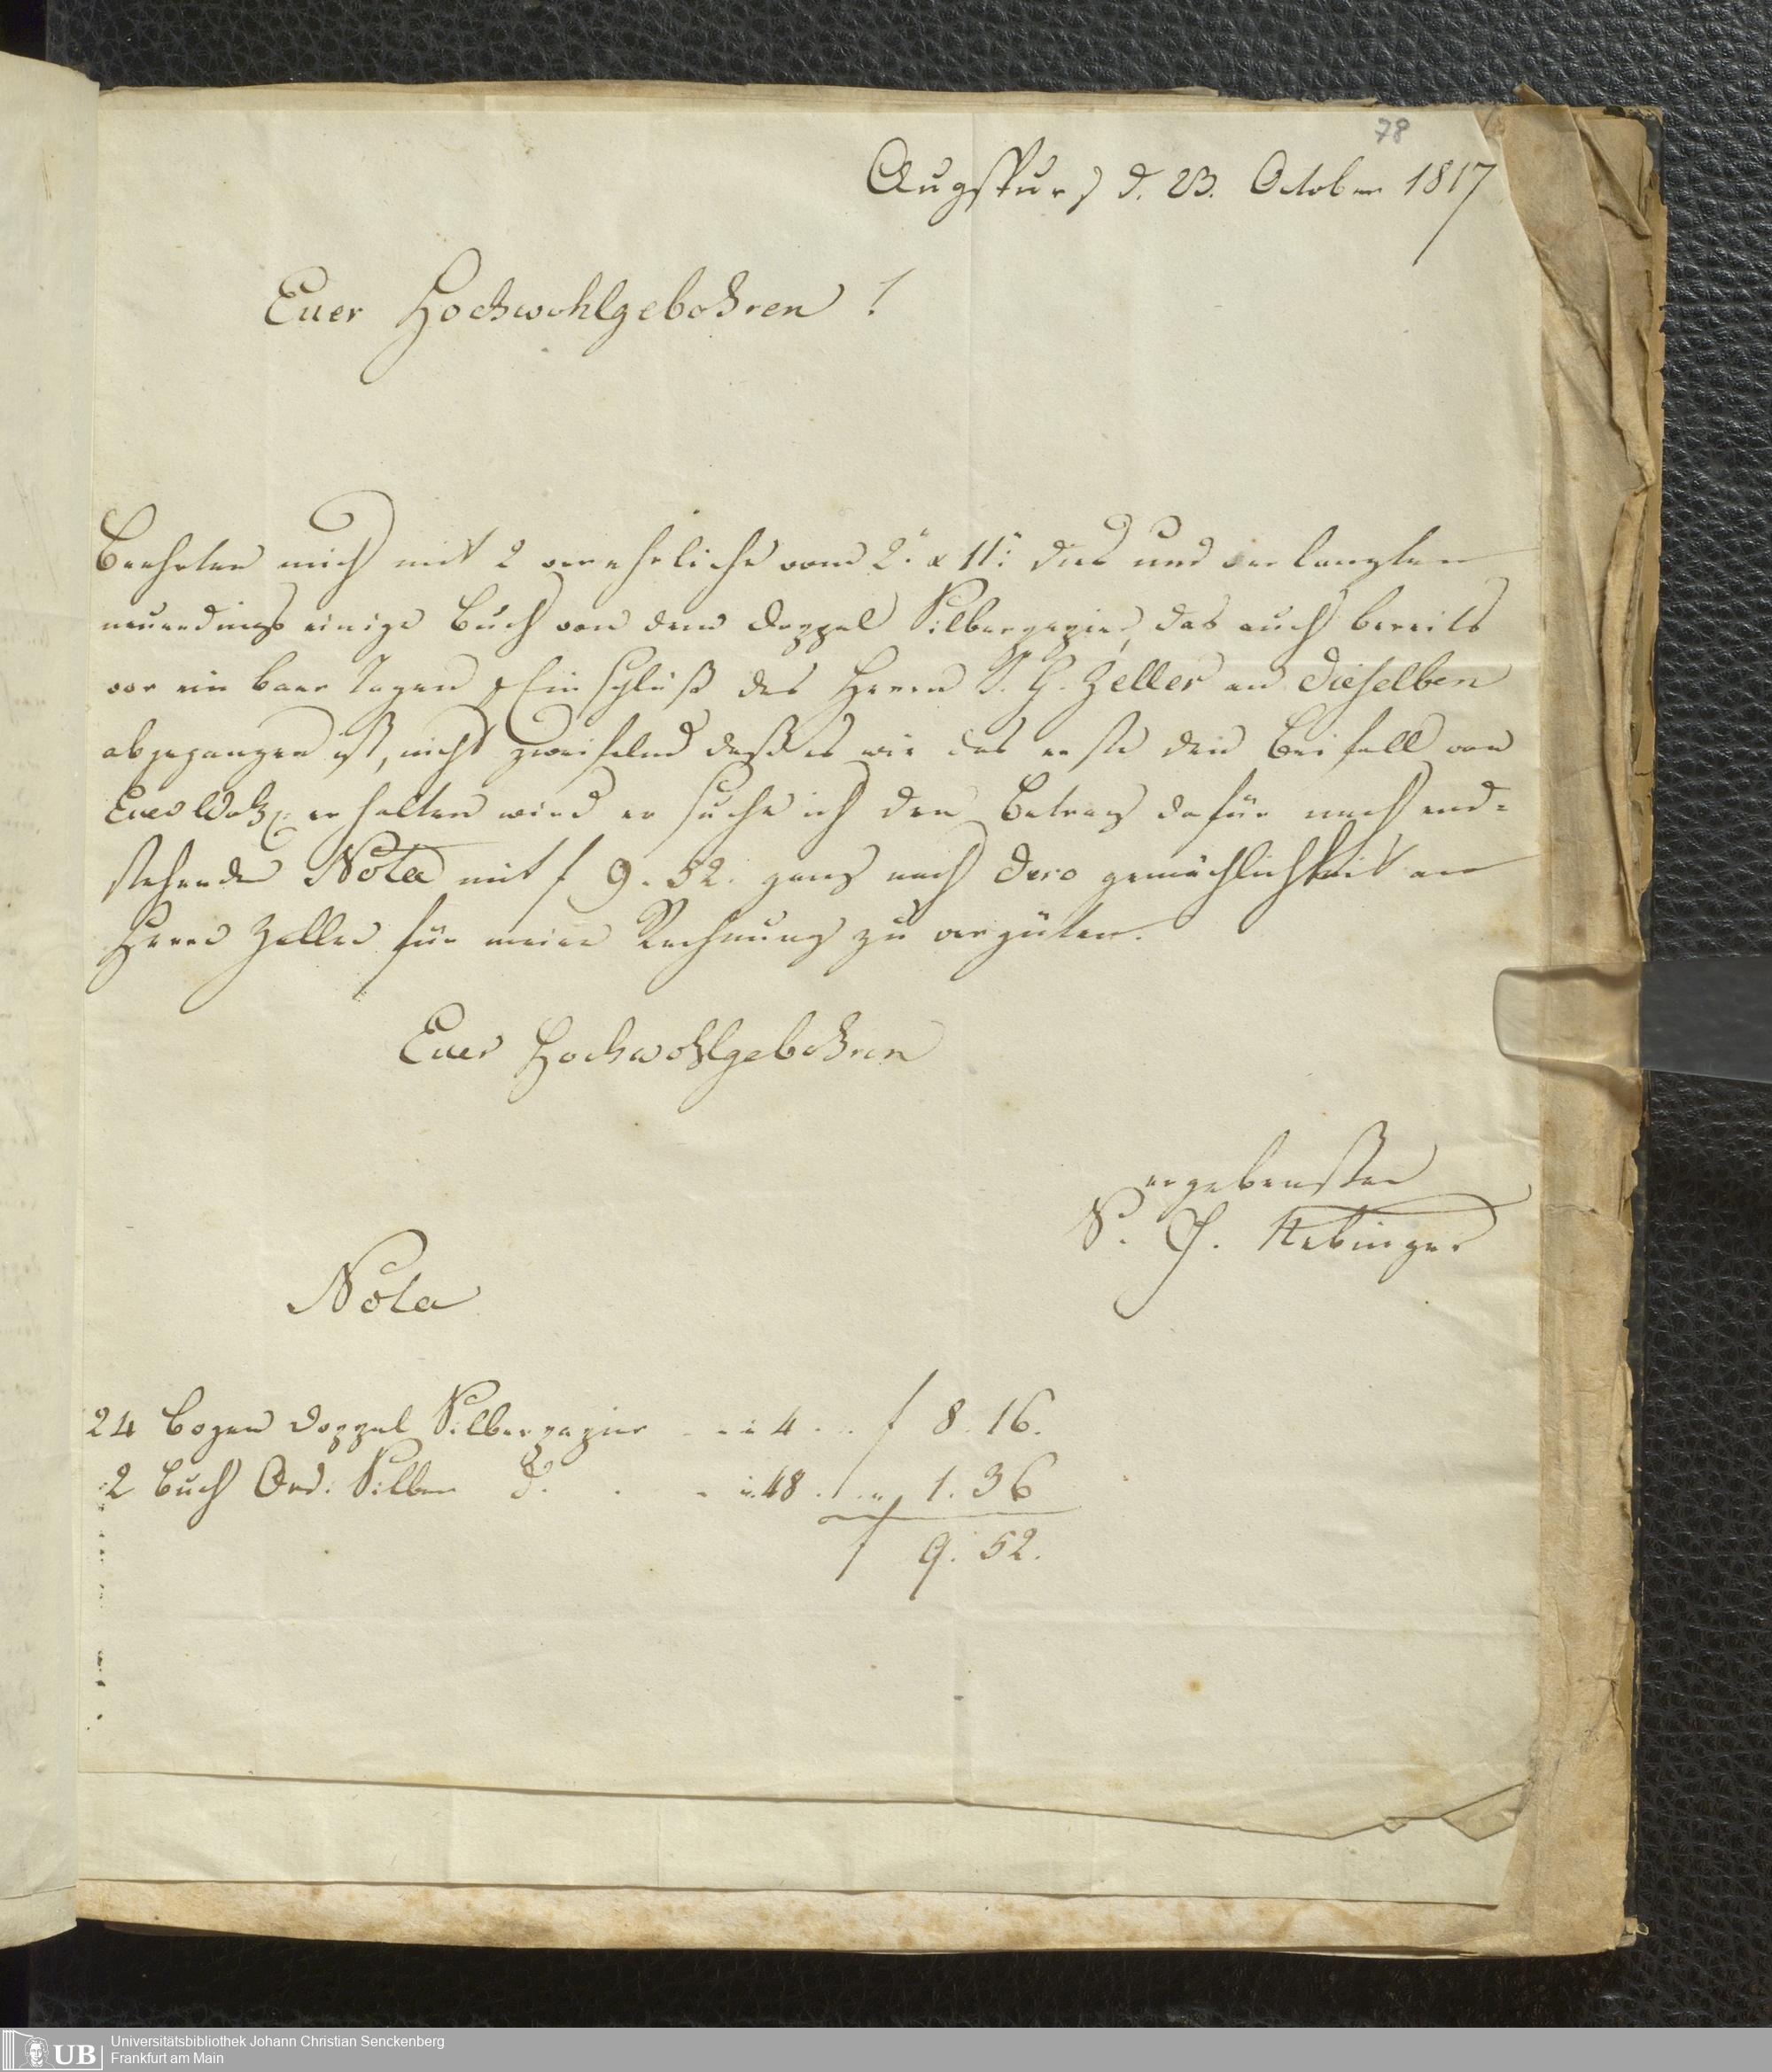 78
Augspurg d. 23. October 1817
Euer Hochwohlgebohren !
Beehrten mich mit 2 verehrliche vom 2. & 11. dies und verlangten
neuerdings einige Buch von dem doppel Silberpapier, das auch bereits
vor ein baar Tagen Einschluß des Herrn J. G. Zeller an dieselben
abgegangen ist, nicht zweifelnd daß es wie das erste den Beifall von
Euer erhalten wird ersuche ich den Betrag dafür nach end=
stehender Nota mit f 9. 52. ganz nach dero gemächlichkeit an
Herrn Zeller für meine Rechnung zu vergüten.
Euer Hochwohlgebohren
ergebenster
Nota
24 Bogen doppel Silberpapier 4 f 8. 16.
2 Buch Ord: Silber d. 48 1. 36
f 9. 52.
UB Universitätsbibliothek Johann Christian Senckenberg
Frankfurt am Main